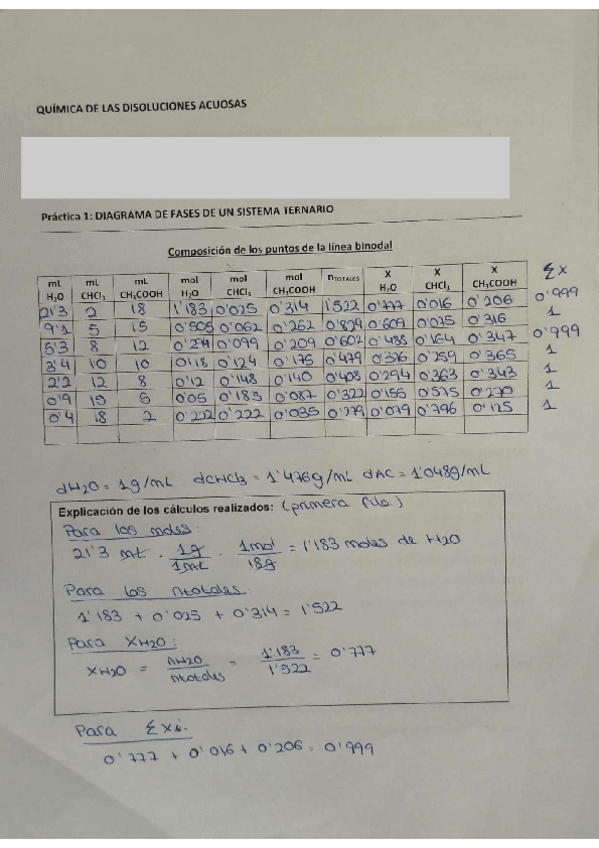 QUÍMICA DE LAS DISOLUCIONES ACUOSAS
Práctica 1: DIAGRAMA DE FASES DE UN SISTEMA TERNARIO
Composición de los puntos de la línea binodal
mL H₂O mL CHCl₃ mL CH₃COOH mol H₂O mol CHCl₃ mol CH₃COOH nTOTALES X H₂O X CHCl₃ X CH₃COOH Σx
21'3 2 18 1'183 0'025 0'314 1'522 0'777 0'016 0'206 0'999
9'1 5 15 0'505 0'062 0'262 0'829 0'609 0'075 0'316 1
5'3 8 12 0'099 0'209 0'602 0'488 0'164 0'347 0'999
3'4 10 10 0'18 0'124 0'175 0'479 0'376 0'259 0'365 1
2'2 12 8 0'12 0'148 0'140 0'408 0'294 0'363 0'343 1
0'9 15 5 0'05 0'185 0'087 0'322 0'155 0'575 0'270 1
0'4 18 2 0'222 0'222 0'035 0'279 0'079 0'796 0'125 1
dH2O = 1g/mL dCHCl3 = 1'476g/mL dAC = 1'048g/mL
Explicación de los cálculos realizados: (primera fila)
Para los moles:
21'3 mL · 1g/1mL · 1mol/18g = 1'183 moles de H2O
Para los ntotales:
1'183 + 0'025 + 0'314 = 1'522
Para XH2O:
XH2O = nH2O/ntotales = 1'183/1'522 = 0'777
Para Σxi.
0'777 + 0'016 + 0'206 = 0'999